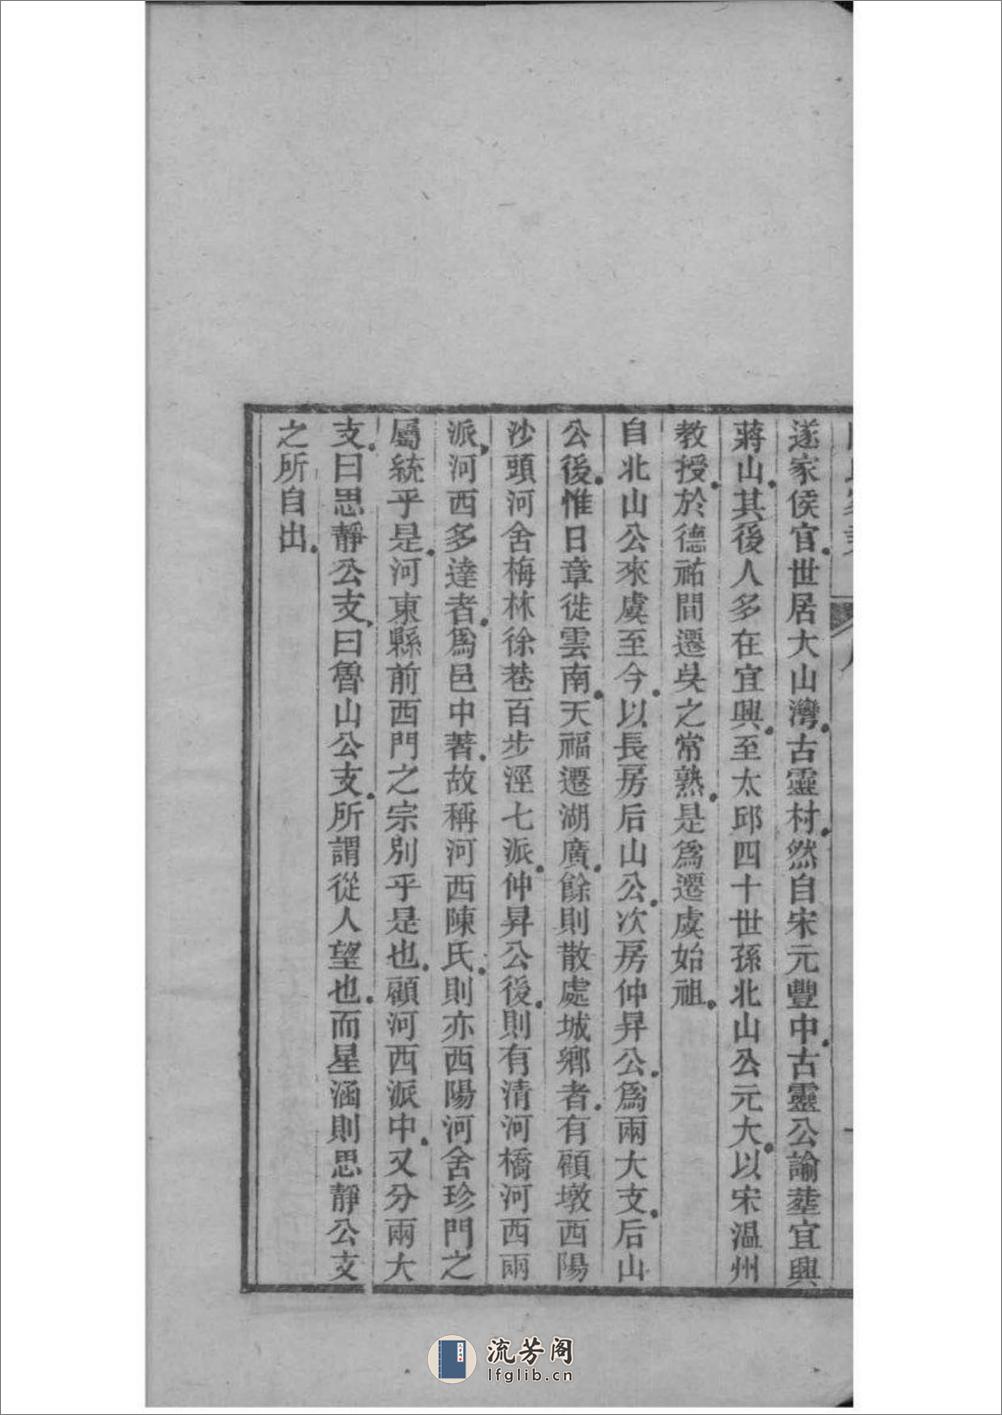 遂家侯官。世居大山灣。古靈村。然自宋元豐中。古靈公諭塟宜興
蔣山。其後人多在宜興。至太邱四十世孫北山公元大。以宋溫州
教授。於德祐間遷吳之常熟。是爲遷虞始祖。
自北山公來虞至今。以長房后山公。次房仲昇公。爲兩大支。后山
公後。惟日章徙雲南。天福遷湖廣。餘則散處城鄉者。有顧墩西陽
沙頭河舍梅林徐巷百步涇七派。仲昇公後。則有清河橋河西兩
派。河西多達者。爲邑中著。故稱河西陳氏。則亦西陽河舍珍門之
屬統乎是。河東縣前西門之宗別乎是也。顧河西派中。又分兩大
支。曰思靜公支。曰魯山公支。所謂從人望也。而星涵則思靜公支
之所自出。
流芳阁
lfglib.cn